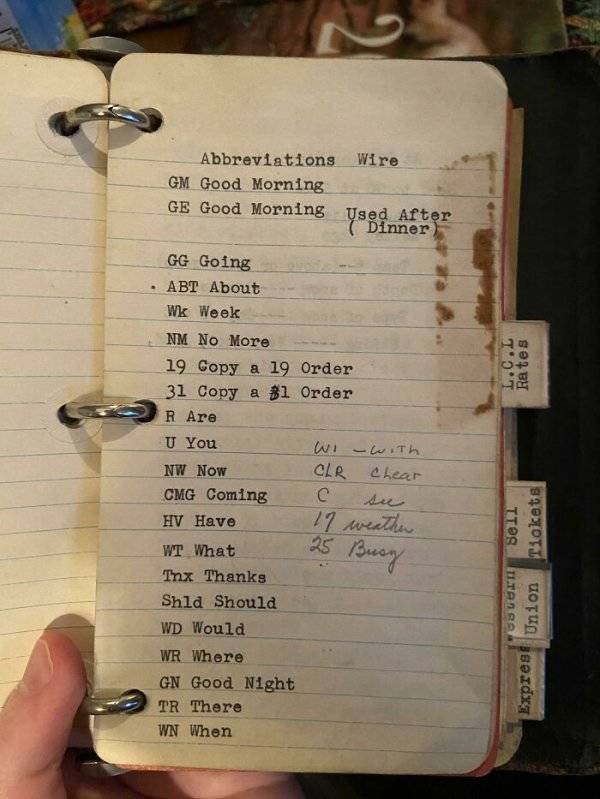 Abbreviations Wire
GM Good Morning
GE Good Morning Used After
( Dinner)
GG Going
ABT About
Wk Week
NM No More
19 Copy a 19 Order
31 Copy a 31 Order
R Are
U You
NW Now
CMG Coming
HV Have
WT What
Tnx Thanks
Shld Should
WD Would
WR Where
GN Good Night
TR There
WN When
WI - WITH
CLR Chear
C see
17 weather
25 Busy
L.C.L
Rates
Sell
Tickets
Western
Union
Express